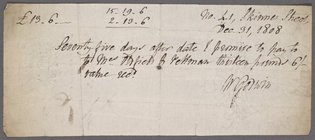 15.19.6
£13.6 2.13.6
No. 41, Skinner Street
Dec. 31, 1808
Seventy five days after date I promise to pay to
Mr & Pettman thirteen pounds 6/
value recd
W Godwin